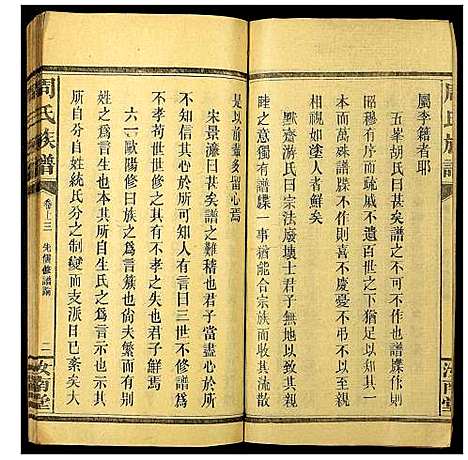 屬李籍者耶
五峯胡氏曰甚矣譜之不可不作也有譜牒作則
昭穆有序而疏戚不遺百世而下知其初一人之
本而萬殊譜牒不作則喜不慶憂不弔
相視如塗人者鮮矣
默齋游氏曰宗法廢壞士君子無以敘其宗
睦之意獨有譜牒一事猶能合宗族而收其渙散
是以前輩多留心焉
宋景濂曰甚矣譜之難稽也君子當盡心於所可
知不信其心於所不可知者因曰三世不修譜爲
不孝苟世世修之有不孝之失也君子鮮焉
六一歐陽修曰族之爲言簇也尙夫繁而有別也
姓之爲言生也本其所生氏之爲言示也示其
所自分自姓統氏分之制變而支派日已紊矣大
周氏族譜
卷上三
先儒修譜論
二
汝南堂
周氏族譜
汝南堂